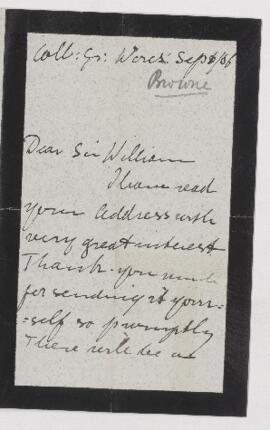 Coll: Gr: Worcr: Sep 8/06
Browne
Dear Sir William
I have read
your Address with
very great interest
Thank you much
for sending it your=
=self so promptly
There will be a